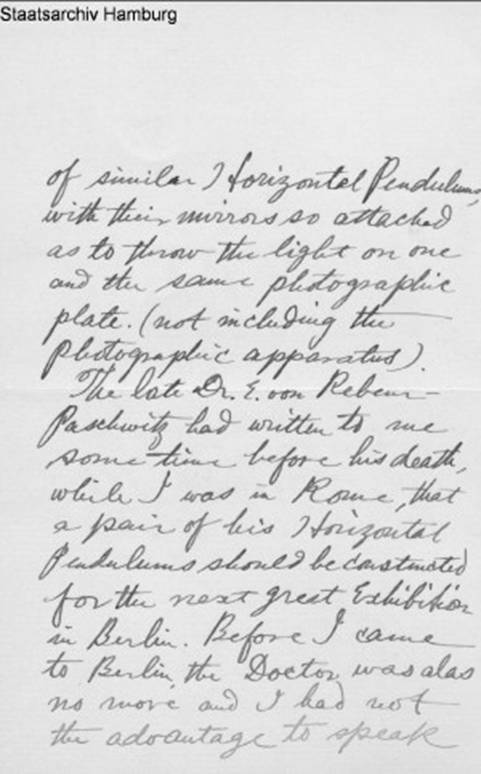 Staatsarchiv Hamburg
of similar Horizontal Pendulums,
with their mirrors so attached
as to throw the light on one
and the same photographic
plate. (not including the
photographic apparatus).
The late Dr. E. von Rebeur-
Paschwitz had written to me
some time before his death,
while I was in Rome, that
a pair of his Horizontal
Pendulums should be constructed
for the next great Exhibition
in Berlin. Before I came
to Berlin, the Doctor was alas
no more and I had not
the advantage to speak